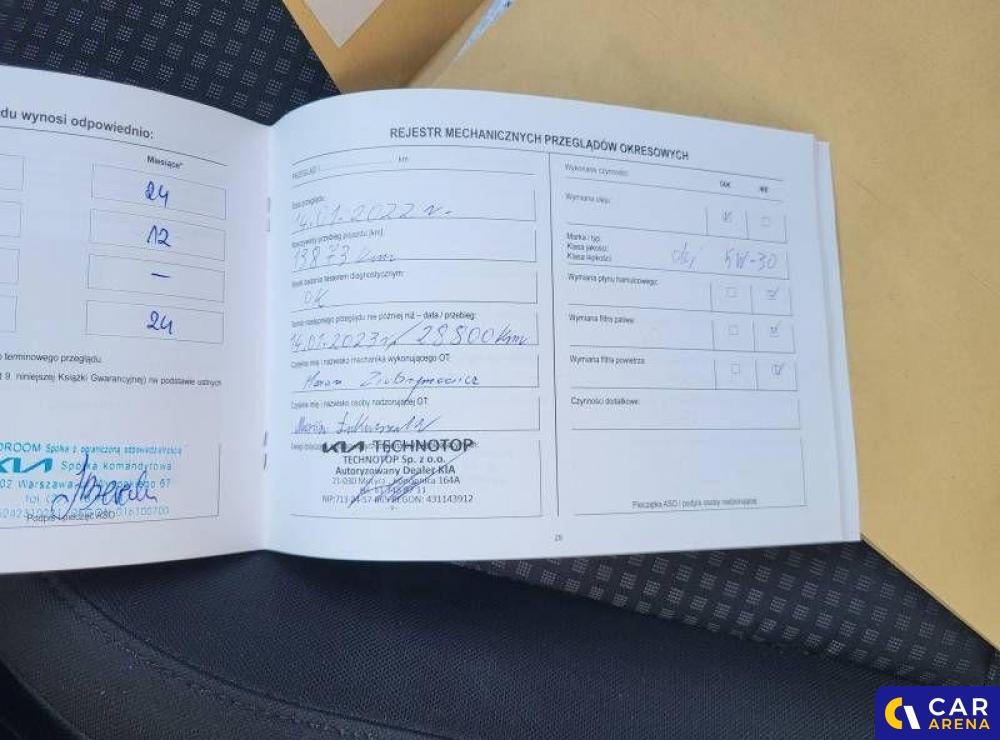 du wynosi odpowiednio:
Miesiące*
24
12
—
24
o terminowego przeglądu.
t 9. niniejszej Książki Gwarancyjnej) na podstawie ustnych
DROOM Spółka z ograniczoną odpowiedzialnością
KIA Spółka komandytowa
02 Warszawa 67
tel.
Podpis i pieczęć ASO
REJESTR MECHANICZNYCH PRZEGLĄDÓW OKRESOWYCH
PRZEGLĄD km
Data przeglądu:
14.01.2022 r.
Rzeczywisty przebieg pojazdu [km]:
13873 km
Wynik badania testerem diagnostycznym:
OK
Termin następnego przeglądu nie później niż – data / przebieg:
14.01.2023 r / 28800 km
Czytelne imię i nazwisko mechanika wykonującego OT:
Czytelne imię i nazwisko osoby nadzorującej OT:
KIA TECHNOTOP
TECHNOTOP Sp. z o.o.
Autoryzowany Dealer KIA
21-030 Motycz, Konopnica 164A
REGON: 431143912
Wykonane czynności:
TAK NIE
Wymiana oleju:
Marka / typ:
Klasa jakości:
Klasa lepkości:
olej 5W-30
Wymiana płynu hamulcowego:
Wymiana filtra paliwa:
Wymiana filtra powietrza:
Czynności dodatkowe:
Pieczątka ASO i podpis osoby nadzorującej
26
CAR
ARENA